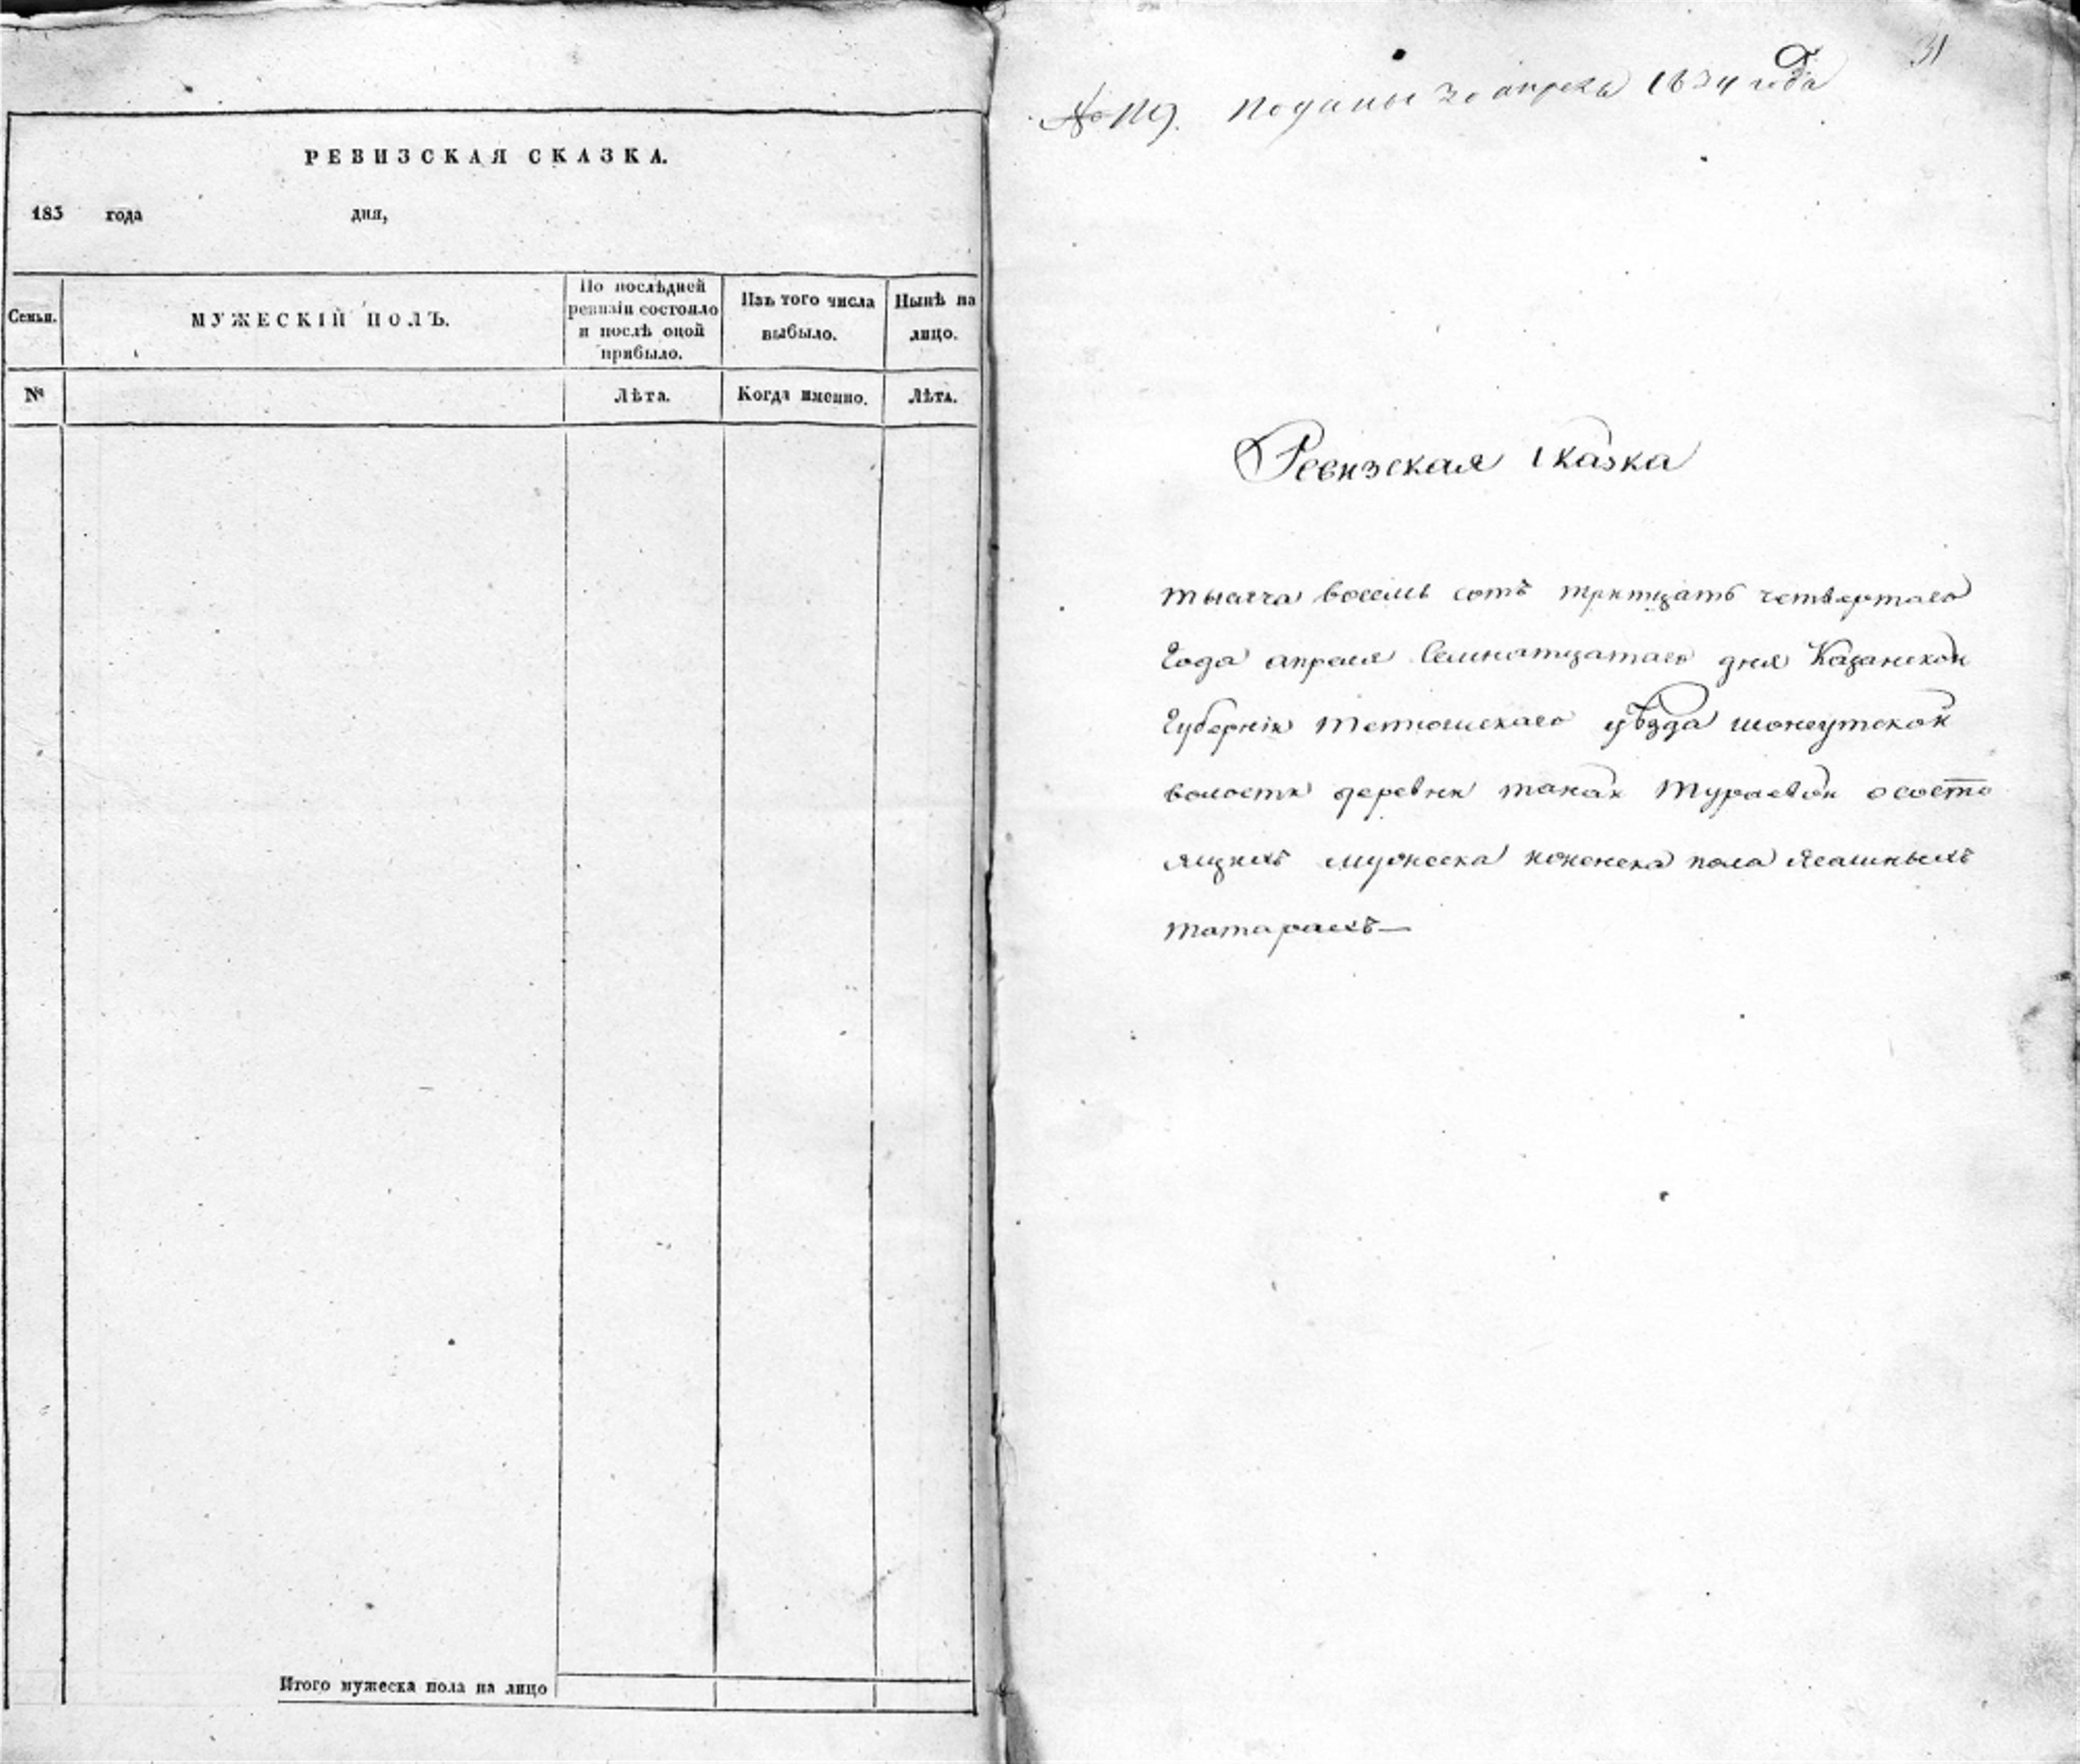 РЕВИЗСКАЯ СКАЗКА.
183 года дня,
Семьи.
МУЖЕСКІЙ ПОЛЪ.
По послѣдней
ревизіи состояло
и послѣ оной
прибыло.
Изъ того числа
выбыло.
Нынѣ на
лицо.
№
Лѣта.
Когда именно.
Лѣта.
Итого мужеска пола на лицо
31
№ 119. Поданы 20 апреля 1834 года
Ревизская сказка
тысяча восемь сотъ тритцать четвертаго
Года апреля Семнатцатаго дня Казанской
Губерніи тетюшскаго уѣзда шонгутской
волости деревни Тураевой о состо
ящихъ мужеска иженска пола Ясашныхъ
татарахъ—